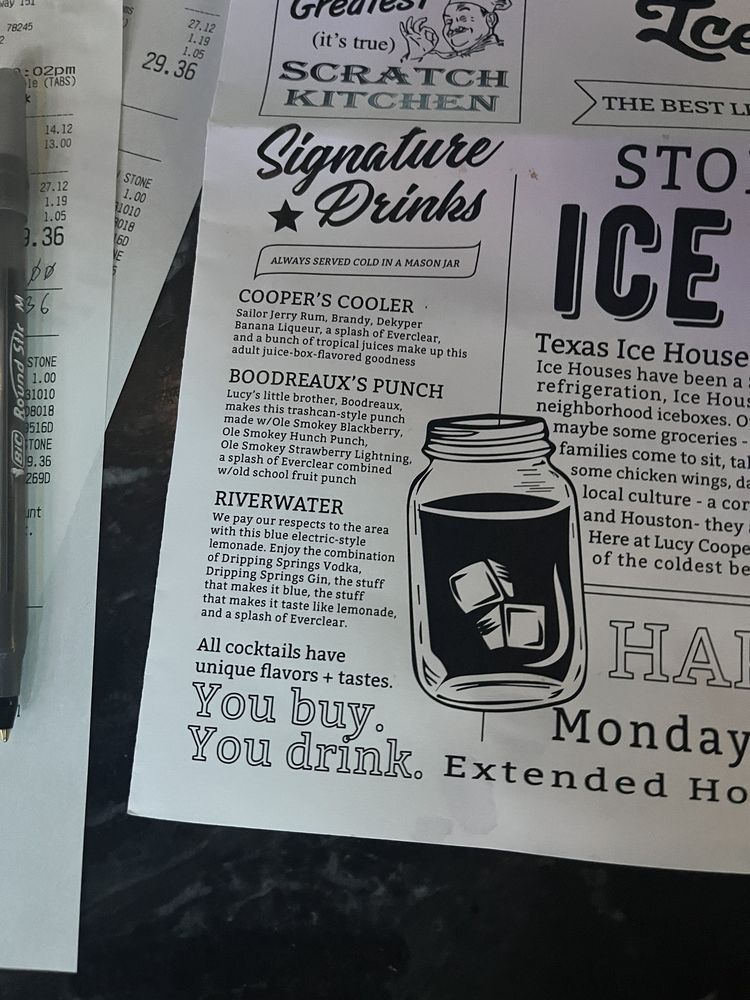 78245
:02pm
(TABS)
14.12
13.00
27.12
1.19
1.05
9.36
36
STONE
1.00
31010
08018
9516D
STONE
9.36
269D
27.12
1.19
1.05
29.36
STONE
1.00
31010
8018
16D
BIC Round Stic M
Greatest
(it's true)
SCRATCH
KITCHEN
Ice
THE BEST
Signature
Drinks
ALWAYS SERVED COLD IN A MASON JAR
COOPER'S COOLER
Sailor Jerry Rum, Brandy, Dekyper
Banana Liqueur, a splash of Everclear,
and a bunch of tropical juices make up this
adult juice-box-flavored goodness
BOODREAUX'S PUNCH
Lucy's little brother, Boodreaux,
makes this trashcan-style punch
made w/Ole Smokey Blackberry,
Ole Smokey Hunch Punch,
Ole Smokey Strawberry Lightning,
a splash of Everclear combined
w/old school fruit punch
RIVERWATER
We pay our respects to the area
with this blue electric-style
lemonade. Enjoy the combination
of Dripping Springs Vodka,
Dripping Springs Gin, the stuff
that makes it blue, the stuff
that makes it taste like lemonade,
and a splash of Everclear.
All cocktails have
unique flavors + tastes.
You buy.
You drink.
STO
ICE
Texas Ice House
Ice Houses have been a
refrigeration, Ice Hous
neighborhood iceboxes. O
maybe some groceries -
families come to sit, tal
some chicken wings, da
local culture - a cor
and Houston- they
Here at Lucy Coope
of the coldest be
HA
Monday
Extended Ho